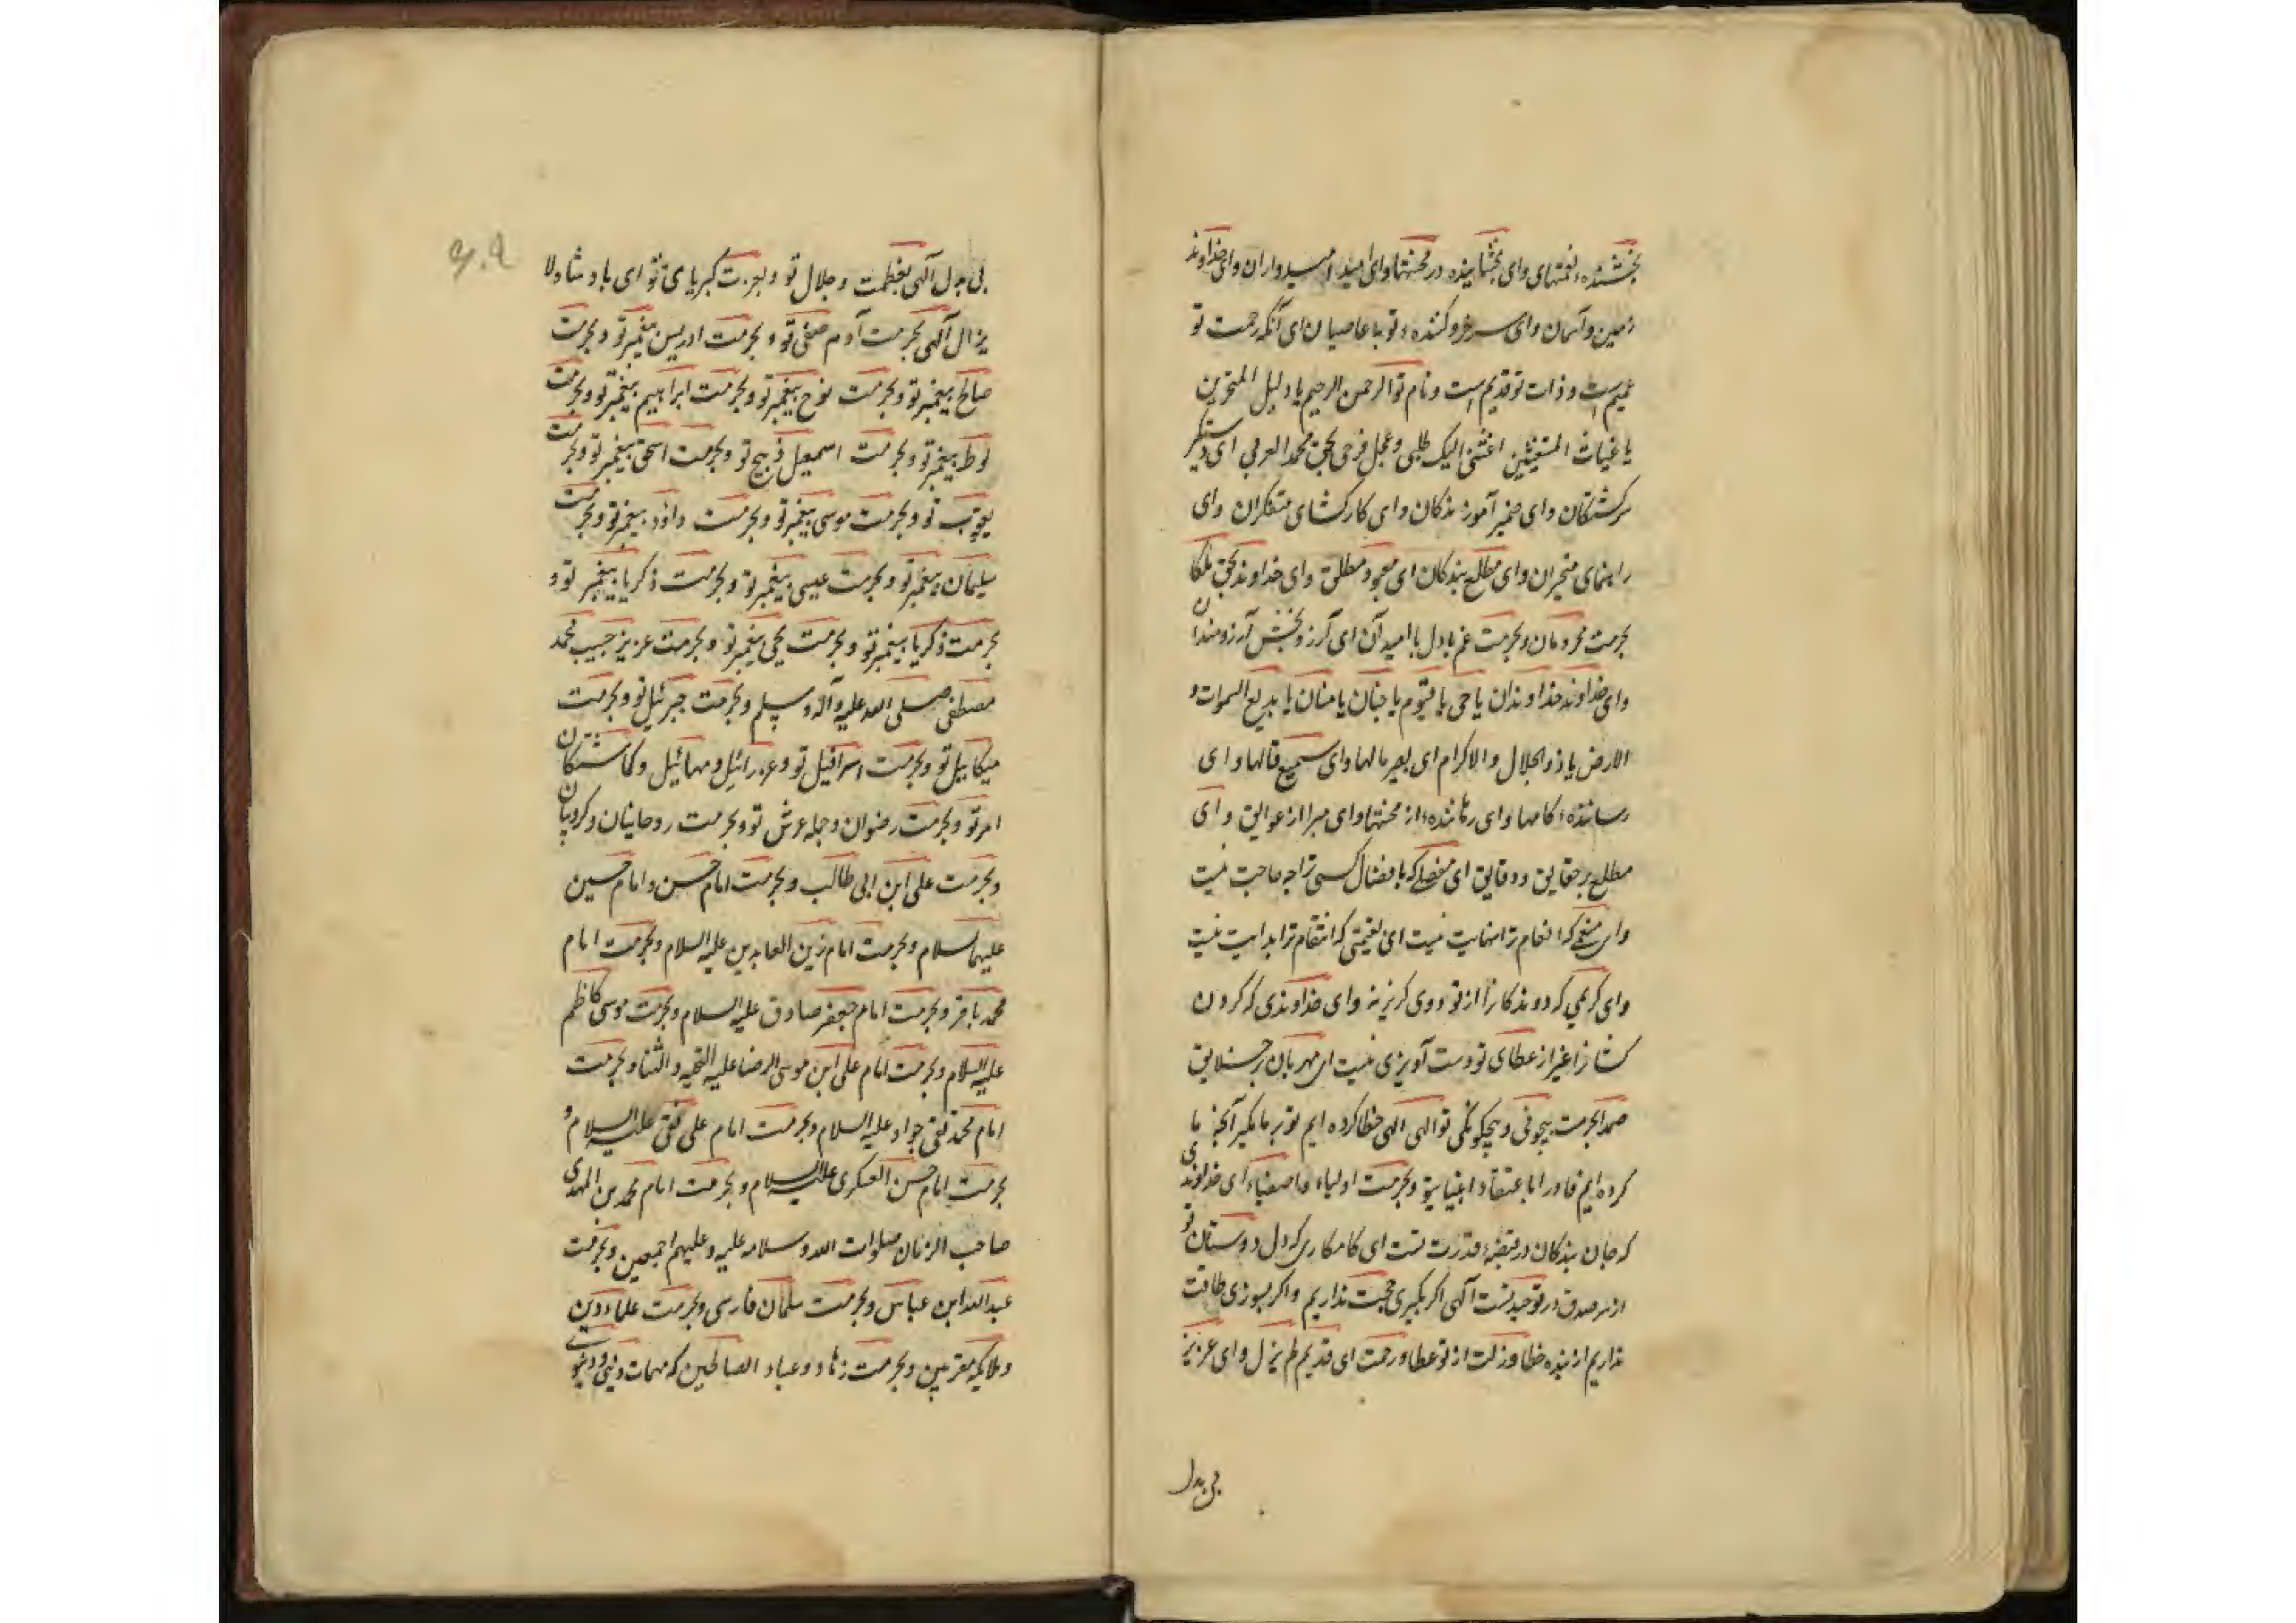 بخشنده نعمتهای وای بخشاینده در محنتها وای امید امیدواران وای خداوند
زمین و آسمان وای سرخرو کننده توبه عاصیان ای آنکه رحمت تو
عمیم است و ذات تو قدیم است و نام تو الرحمن الرحیم یا دلیل المتحیرین
یا غیاث المستغیثین اغثنی الیک طلبی و عجل فرجی بحق محمد العربی ای دستکیر
سرکشتکان وای ضمیر آموز بندکان وای کارکشای متفکران وای
راهنمای متحیران وای مطلع بندکان ای معبود مطلق وای خداوند بحق
بحرمت محرومان وبحرمت غم با امید آن ای آرزو بخش آرزومندان
وای خداوند خداوندان یا حی یا قیوم یا حنان یا منان یا بدیع السموات و
الارض یا ذوالجلال والاکرام ای بصیر مالها وای سمیع قالها وای
رساننده کامها وای رهاننده از محنتها وای مبرا از عوایق وای
مطلع بر حقایق و دقایق ای مفضلی که با فضال کسی ترا حاجت نیست
وای منعمی که انعام ترا نهایت نیست ای که انتقام ترا بدایت نیست
وای کریمی که روی کریز نه وای خداوندی که کردن
غیر از عطای تو دست آویزی نیست ای مهربان بر خلایق
صمدا بحرمت بیچونی و بیچکونکی تو الهی الهی خطا کرده ایم تو بر ما مکیر آنچه ما
کرده ایم قادرا وبحرمت اولیاء واصفیاء ای خداوندی
که جان بندکان در قبضه قدرت تست ای کامکاری که دل دوستان تو
از سر صدق در توحید تست آلهی اکر بکیری حجت نداریم واکر بسوزی طاقت
نداریم از بنده خطا وزلت از تو عطا ورحمت ای قدیم لم یزل وای عزیز
بی بدل
بی بدل آلهی بعظمت وجلال تو وبعزت کبریای تو ای پادشاه لا
یزال آلهی بحرمت آدم صفی تو وبحرمت ادریس پیغمبر تو وبحرمت
صالح پیغمبر تو وبحرمت نوح پیغمبر تو وبحرمت ابراهیم پیغمبر تو وبحرمت
لوط پیغمبر تو وبحرمت اسمعیل ذبیح تو وبحرمت اسحق پیغمبر تو وبحرمت
یعقوب تو وبحرمت موسی پیغمبر تو وبحرمت داؤد پیغمبر تو وبحرمت
سلیمان پیغمبر تو وبحرمت عیسی پیغمبر تو وبحرمت ذکریا پیغمبر تو و
بحرمت ذکریا پیغمبر تو وبحرمت یحی پیغمبر تو وبحرمت عزیز حبیب محمد
مصطفی صلی الله علیه وآله وسلم وبحرمت جبرئیل تو وبحرمت
میکاییل تو وبحرمت اسرافیل تو وعزرائیل ومهائیل وکماشتکان
امر تو وبحرمت رضوان وجمله عرش تو وبحرمت روحانیان وکروبیان
وبحرمت علی ابن ابی طالب وبحرمت امام حسن وامام حسین
علیهما السلام وبحرمت امام زین العابدین علیه السلام وبحرمت امام
محمد باقر وبحرمت امام جعفر صادق علیه السلام وبحرمت موسی کاظم
علیه السلام وبحرمت امام علی ابن موسی الرضا علیه التحیه والثنا وبحرمت
امام محمد تقی جواد علیه السلام وبحرمت امام علی نقی علیه السلام و
بحرمت امام حسن العسکری علیه السلام وبحرمت امام محمد بن المهدی
صاحب الزمان صلوات الله وسلامه علیه وعلیهم اجمعین وبحرمت
عبدالله ابن عباس وبحرمت سلمان فارسی وبحرمت علماء دین
وملایکه مقربین وبحرمت زهاد وعباد الصالحین که مهمات دینی ودنیوی